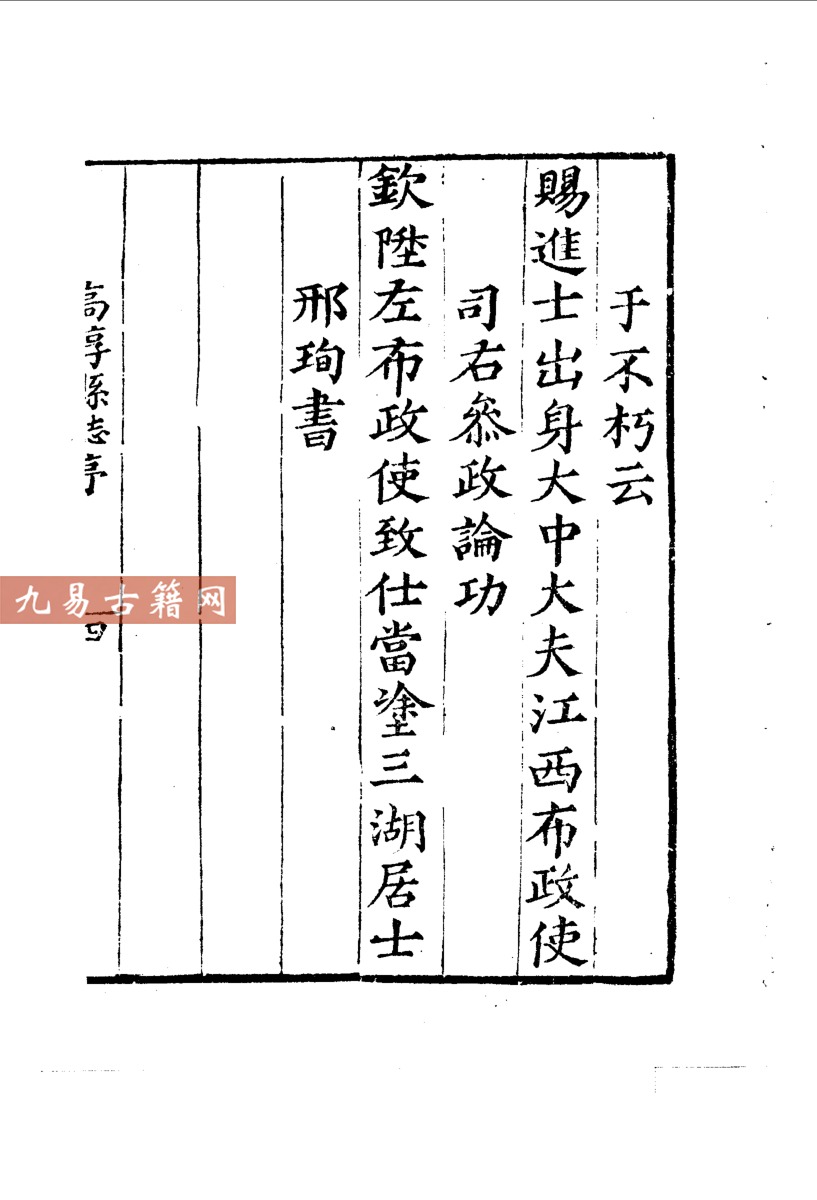 于不朽云
賜進士出身大中大夫江西布政使
司右叅政論功
欽陞左布政使致仕當塗三湖居士
邢珣書
高享縣志序
四
九易古籍网